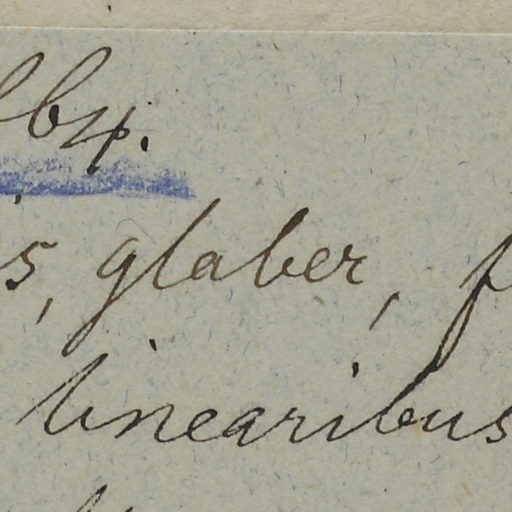 is, glaber, f
linearibus